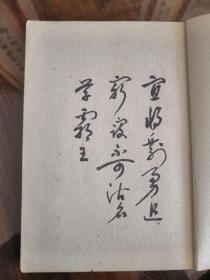 宜将剩勇追
穷寇不可沽名
学霸王